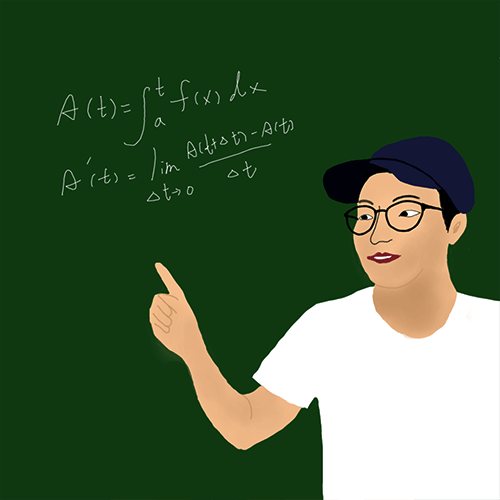 A(t)=∫ₐᵗ f(x) dx
A'(t) = lim Δt→0 A(t+Δt)-A(t) / Δt